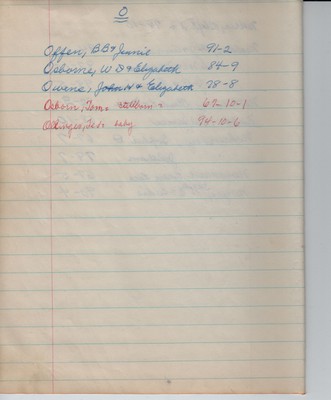 O
Offen, B B & Jennie 91-2
Osborne, W D & Elizabeth 84-9
Owens, John H & Elizabeth 78-8
Osborn, Tom. stillborn 67-10-1
Ollinger, Ted. baby 94-10-6